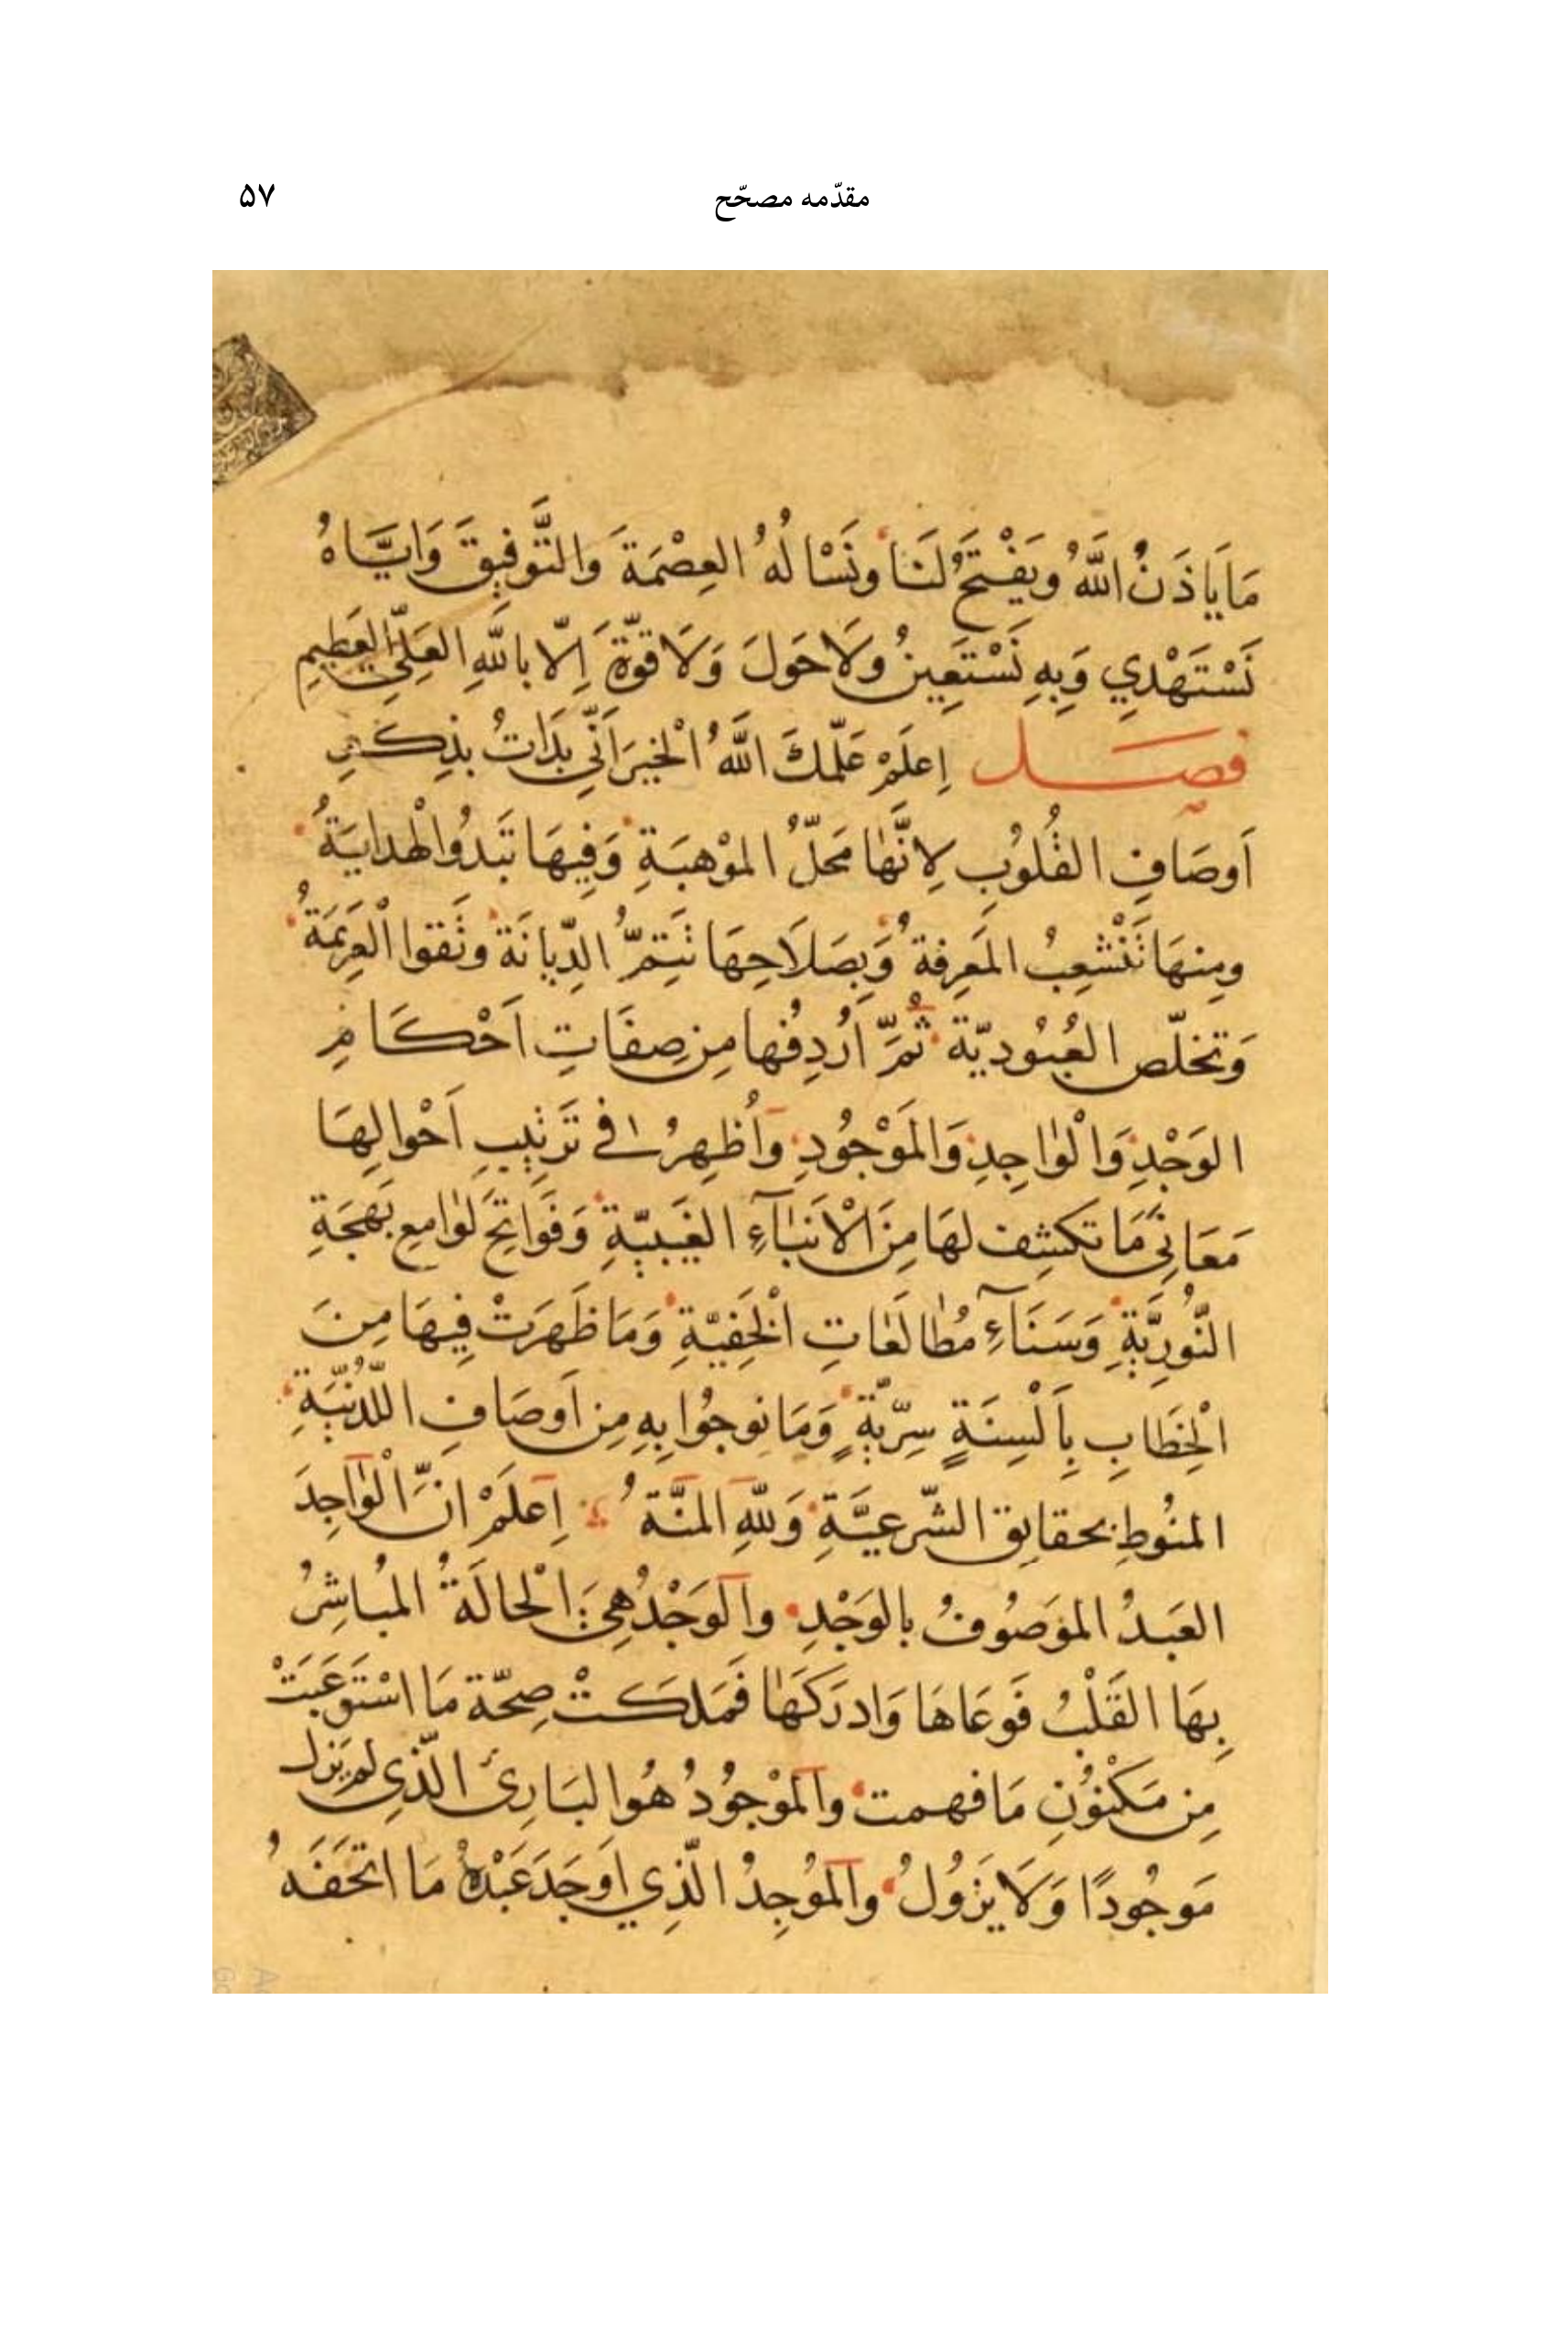 مقدّمه مصحّح ۵۷
مَا يَاذَنُ اللَّهُ وَيَفْتَحُ لَنَا وَنَسْالُهُ العِصْمَةَ وَالتَّوفِيقَ وَايَّاهُ
نَسْتَهْدِي وَبِهِ نَسْتَعِينُ وَلَا حَولَ وَلَا قوَّةَ اِلّا بِاللَّهِ العَلِيِّ العَظِيمِ
فصل اِعلَمْ عَلَّمكَ اللَّهُ الْخيرَ اَنِّي بَدَاتُ بذِكرِ
اَوصَافِ القُلُوبِ لِانَّهَا مَحَلُّ المَوْهبَةِ وَفِيهَا تَبَدُوا الْهدايَةُ
ومِنهَا تَنْشعِبُ المَعرِفةُ وَبِصَلَاحِهَا تَتِمُّ الدِّيانَة وتَقوا الْعَزِيمَةُ
وَتخلّص العُبُوديّة ثُمَّ اُردِفُها مِن صِفَاتِ اَحْكَامِ
الوَجْدِ وَالْوَاجِدِ وَالمَوْجُودِ وَاُظهِرُ في تَرتِيبِ اَحْوالِهَا
مَعَانِيَ مَا تكشِف لهَا مِنَ الْانبَآءِ الغَيبيّةِ وَفَوَاتِحَ لَوَامعِ بَهجَةِ
النُّورِيَّةِ وَسَنَآءِ مُطَالَعَاتِ الْخَفِيّةِ وَمَا ظَهَرَتْ فِيهَا مِنَ
الْخِطَابِ بِاَلْسِنَةٍ سِرّيّةٍ وَمَا نوجُوا بِهِ مِن اَوصَافِ اللَّدُنيَّةِ
المنُوطِ بحقايق الشّرعيَّةِ وَللّهِ المنَّةُ اِعلَمْ انَّ الْوَاجِدَ
العَبدُ المَوصُوفُ بالوَجْدِ وَالوَجْدُ هِيَ الْحالَةُ المُباشِرُ
بِهَا القَلْبُ فَوعَاهَا وَادرَكَهَا فَمَلكَتْ صِحّة مَا اسْتَوعَبَتْ
مِن مَكْنوُنِ مَا فهمت وَالمَوْجُودُ هُوَ البَارِئ الّذِي لم يَزل
مَوجُودًا وَلَا يَزُولُ وَالمُوجِدُ الّذِي اَوجَدَ عَبْدهُ مَا اتحَفَهُ